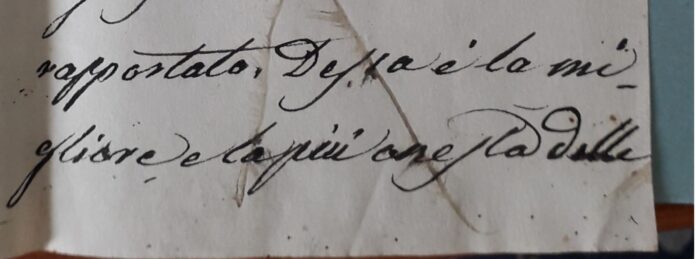 rapportato. Dessa è la mi-
gliore e la più onesta delle